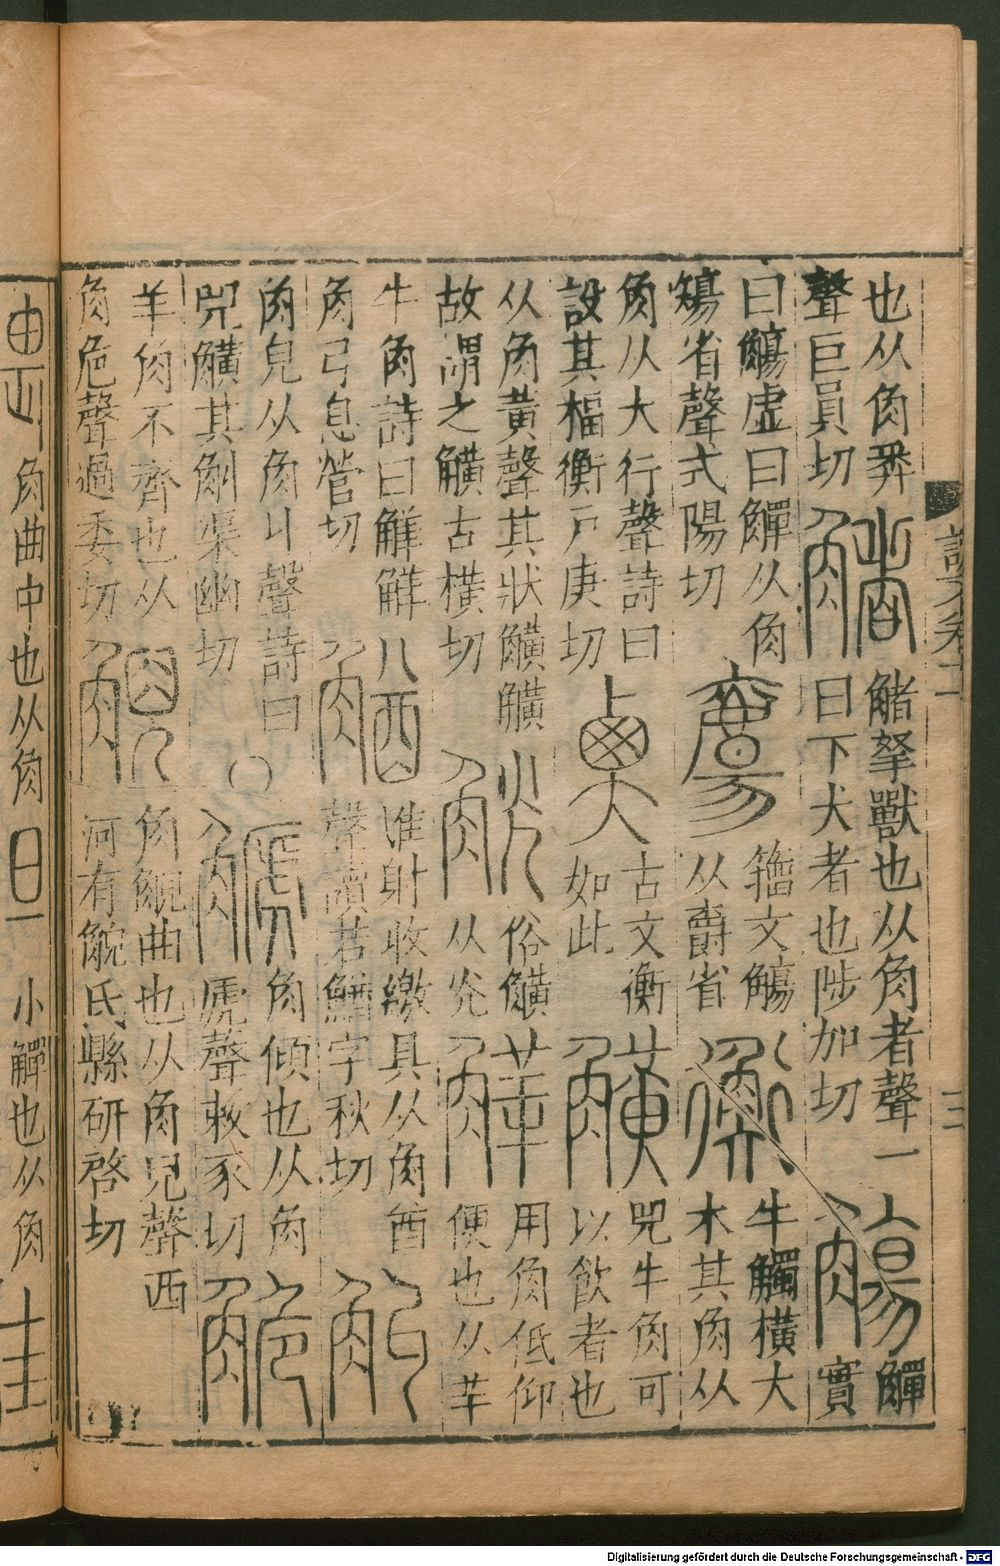 說文卷十二
三
也从角弮
聲巨員切
觰
觰拏獸也从角者聲一
曰下犬者也陟加切
觴
觶
實
曰觴虛曰觶从角
𥏻省聲式陽切
籀文觴
从爵省
衡
牛觸橫大
木其角从
角从大行聲詩曰
設其楅衡戶庚切
古文衡
如此
觵
兕牛角可
以飲者也
从角黃聲其狀觵觵
故謂之觵古橫切
觥
俗觵
从光
觲
用角低仰
便也从羊
牛角詩曰觲觲
角弓息營切
觴
惟射收繳具从角酋
聲讀若鰌字秋切
觓
角皃从角丩聲詩曰
兕觵其觓渠幽切
○
觽
角傾也从角
虒聲敕豕切
觤
羊角不齊也从
角危聲過委切
觬
角觬曲也从角兒聲西
河有觬氏縣研啓切
角曲中也从角
小觶也从角
Digitalisierung gefördert durch die Deutsche Forschungsgemeinschaft - DFG